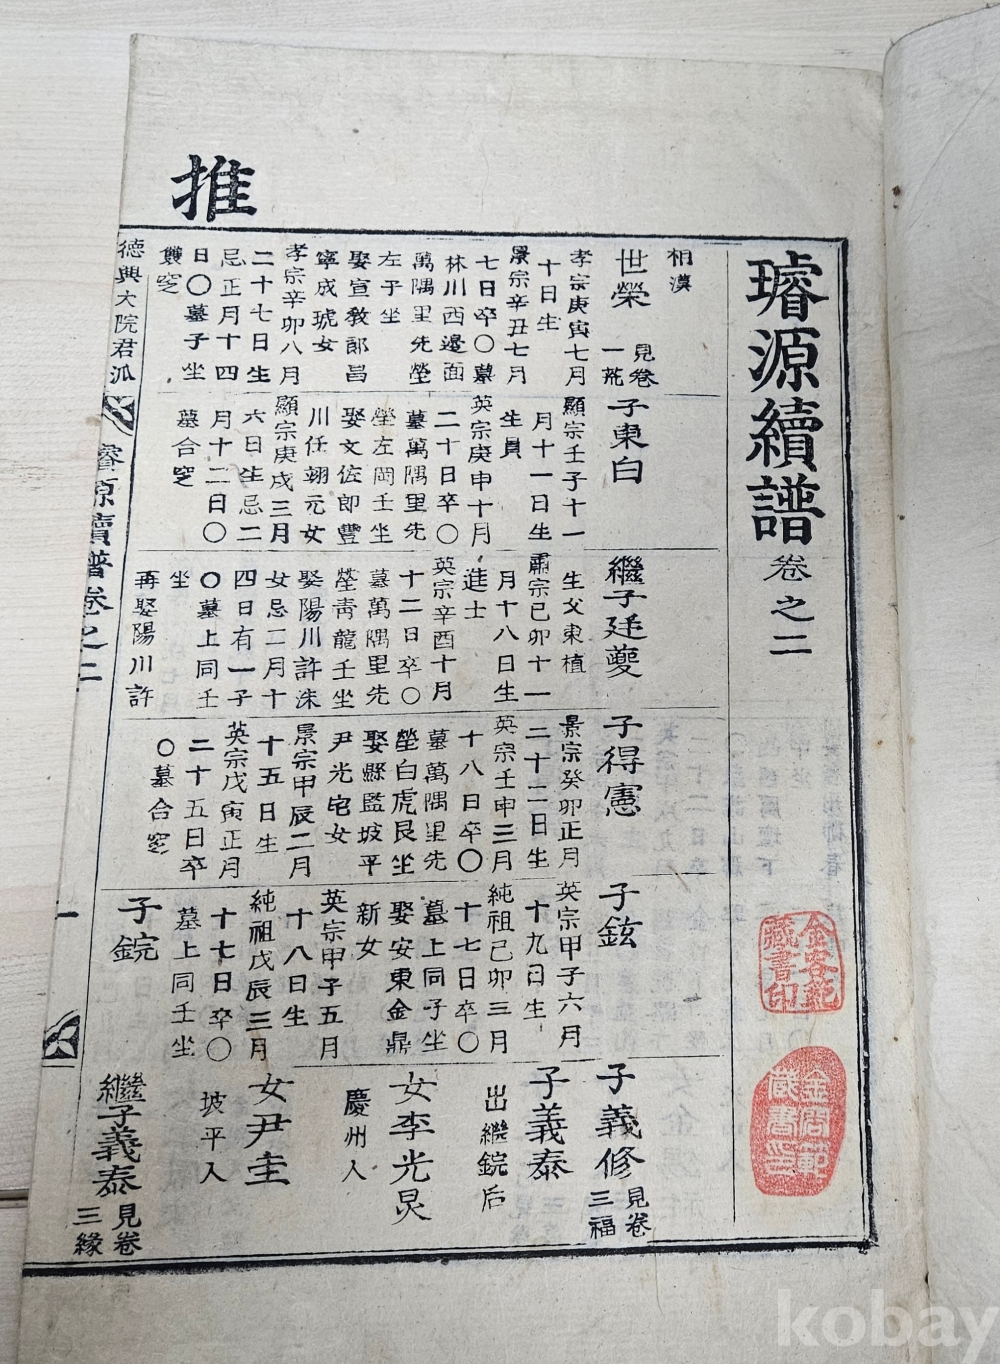 推
璿源續譜 卷之二
相漢
世榮 見卷
一荒
孝宗庚寅七月
十日生
景宗辛丑七月
七日卒〇墓
林川西邉面
萬隅里先塋
左子坐
娶宣教郎昌
寧成琥女
孝宗辛卯八月
二十七日生
忌正月十四
日〇墓子坐
雙窆
子東白
顯宗壬子十一
月十一日生
生員
英宗庚申十月
二十日卒〇
墓萬隅里先
塋左岡壬坐
娶文佐郎豐
川任翊元女
顯宗庚戌三月
六日生忌二
月十二日〇
墓合窆
繼子廷夔
生父東植
肅宗己卯十一
月十八日生
進士
英宗辛酉十月
十二日卒〇
墓萬隅里先
塋靑龍壬坐
娶陽川許洙
女忌二月十
四日有一子
〇墓上同壬
坐
再娶陽川許
子得憲
景宗癸卯正月
二十二日生
英宗壬申三月
十八日卒〇
墓萬隅里先
塋白虎艮坐
娶縣監坡平
尹光宅女
景宗甲辰二月
十五日生
英宗戊寅正月
二十五日卒
〇墓合窆
子鉉
英宗甲子六月
十九日生
純祖己卯三月
十七日卒〇
墓上同子坐
娶安東金鼎
新女
英宗甲子五月
十八日生
純祖戊辰三月
十七日卒〇
墓上同壬坐
子鋎
子義修 見卷
三福
子義泰
出繼鋎后
女李光炅
慶州人
女尹圭
坡平人
繼子義泰 見卷
三緣
德興大院君派
璿源續譜卷之二
一
藏書印
金容範
藏書印
kobay